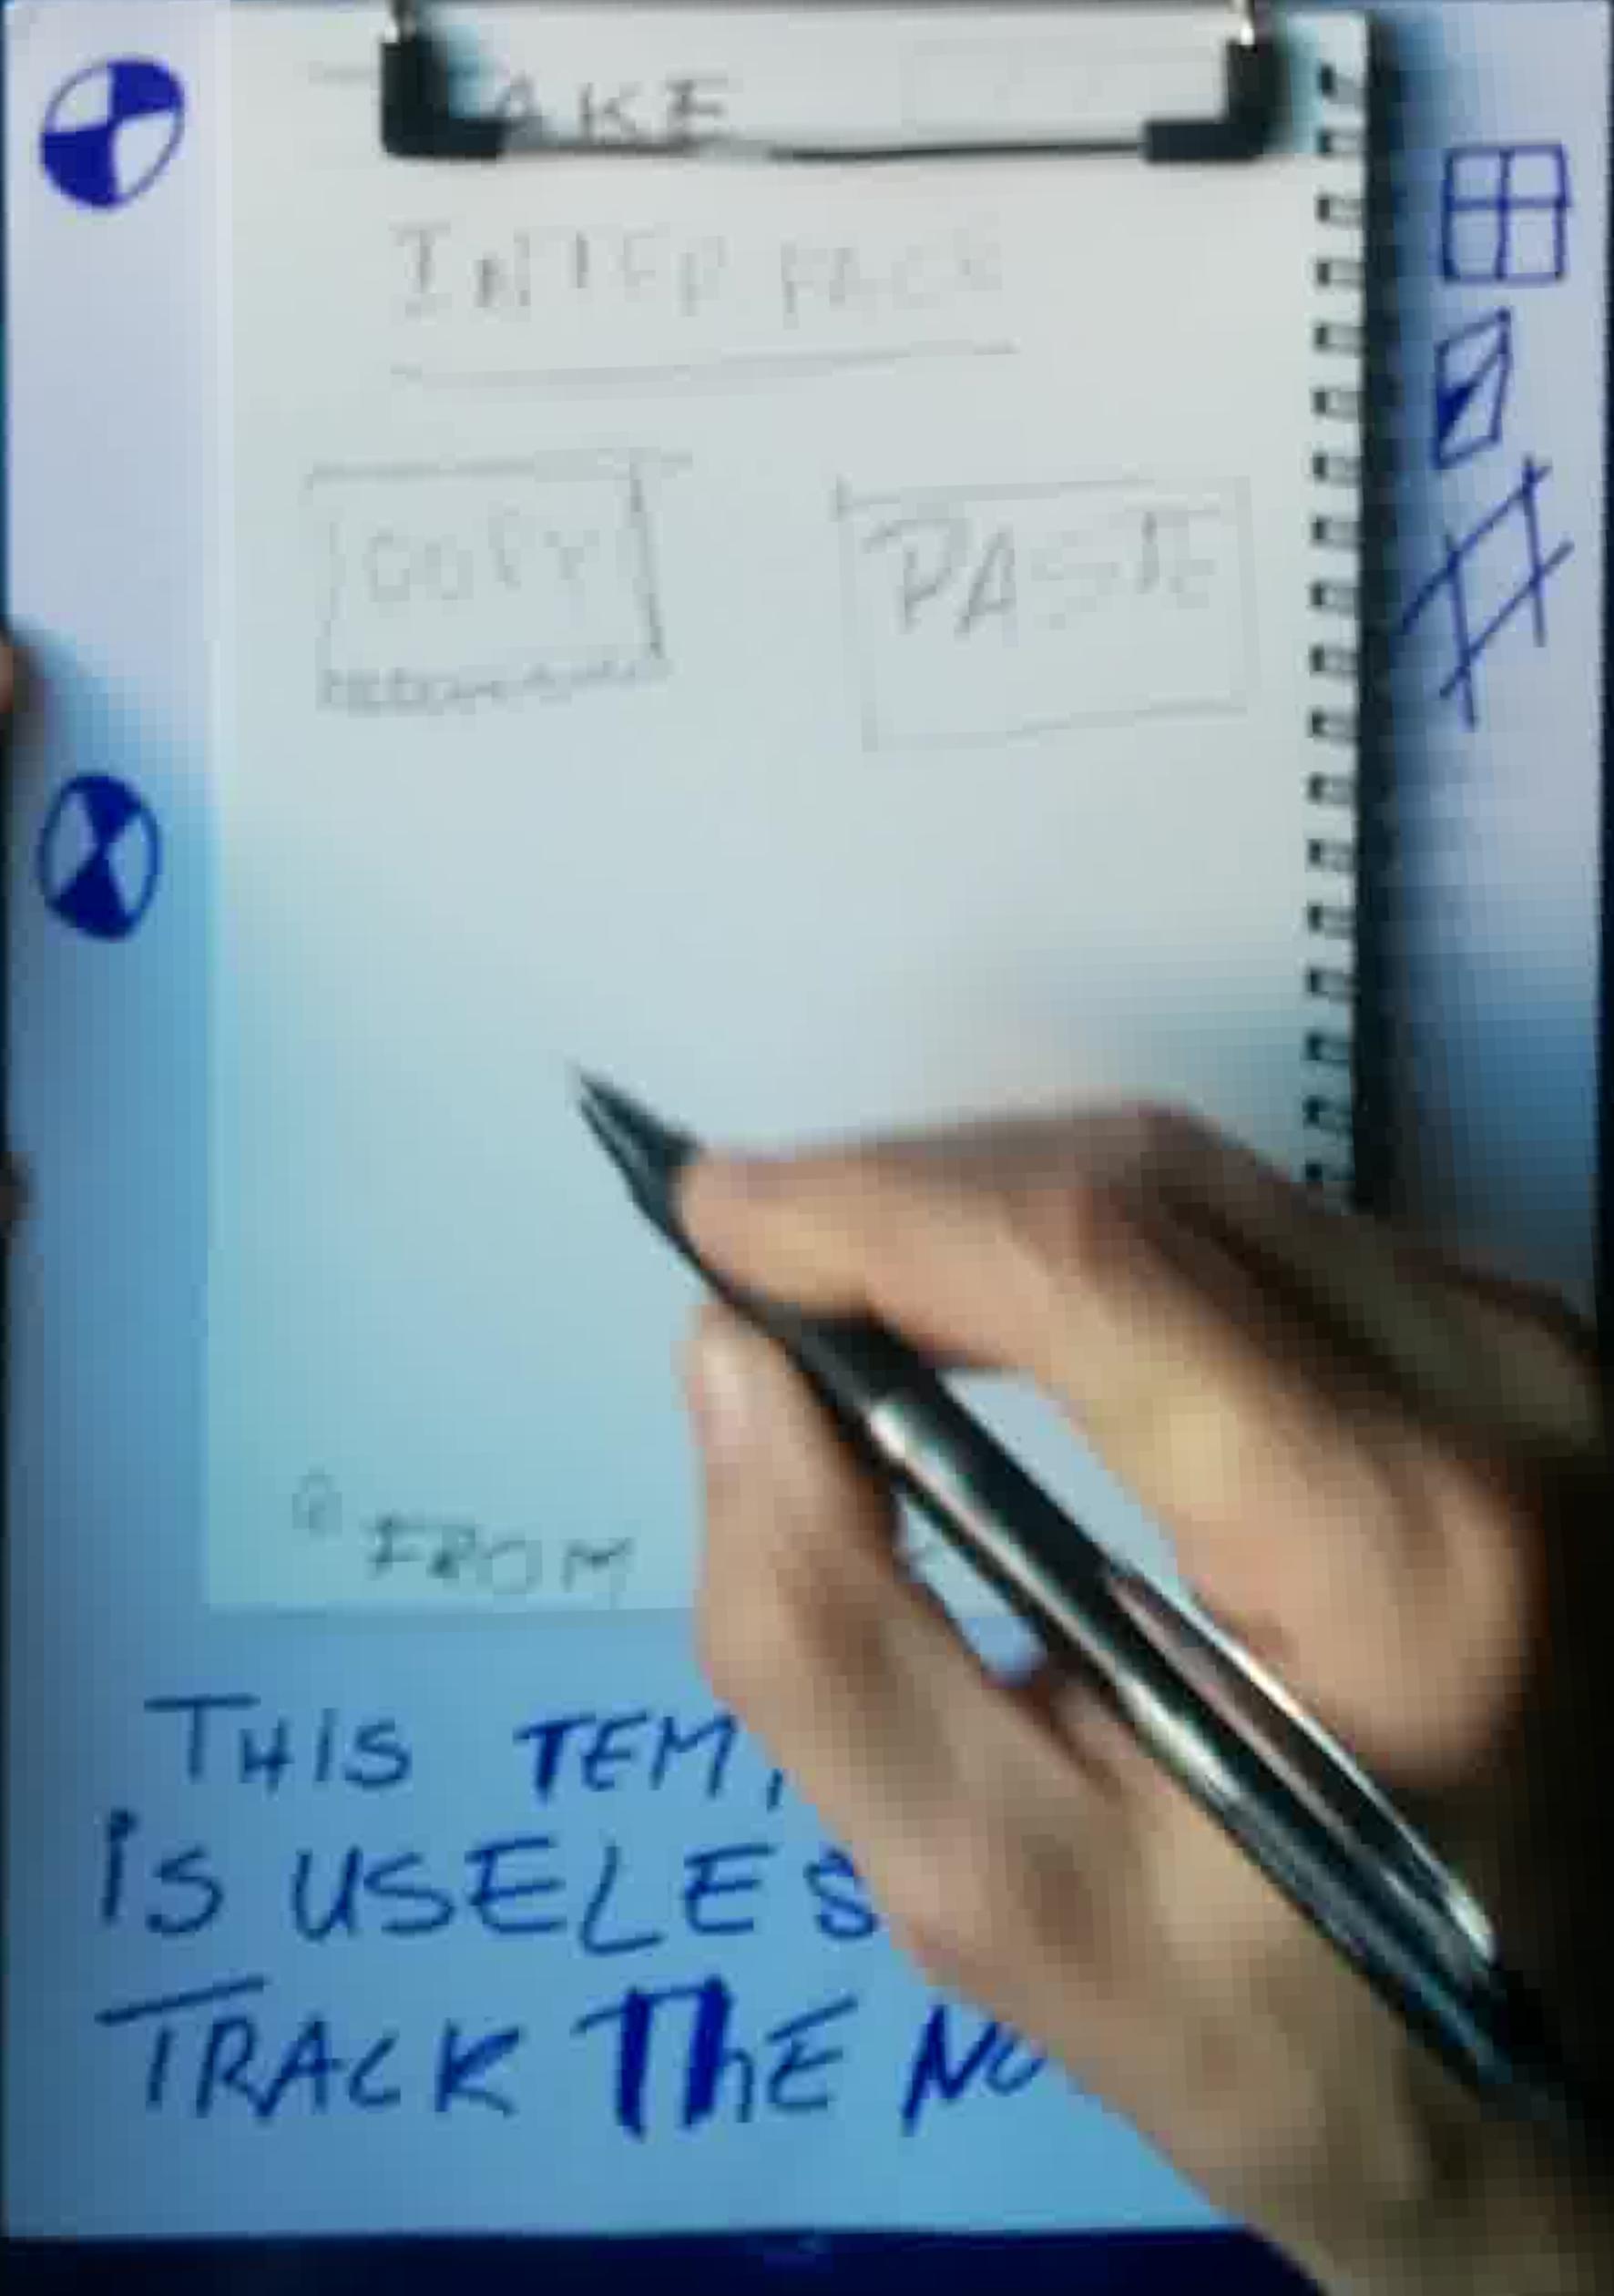 AKE
INTERFACE
COPY PASTE
FROM
THIS TEM
is USELES
TRACK ThE NO